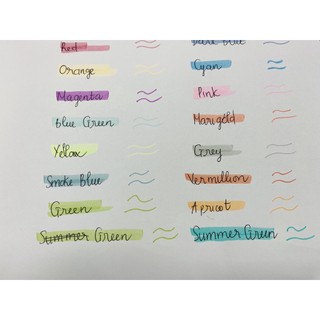 Red
Dark Blue
Orange
Cyan
Magenta
Pink
Blue Green
Marigold
Yellow
Grey
Smoke Blue
Vermillion
Green
Apricot
Summer Green
Summer Green